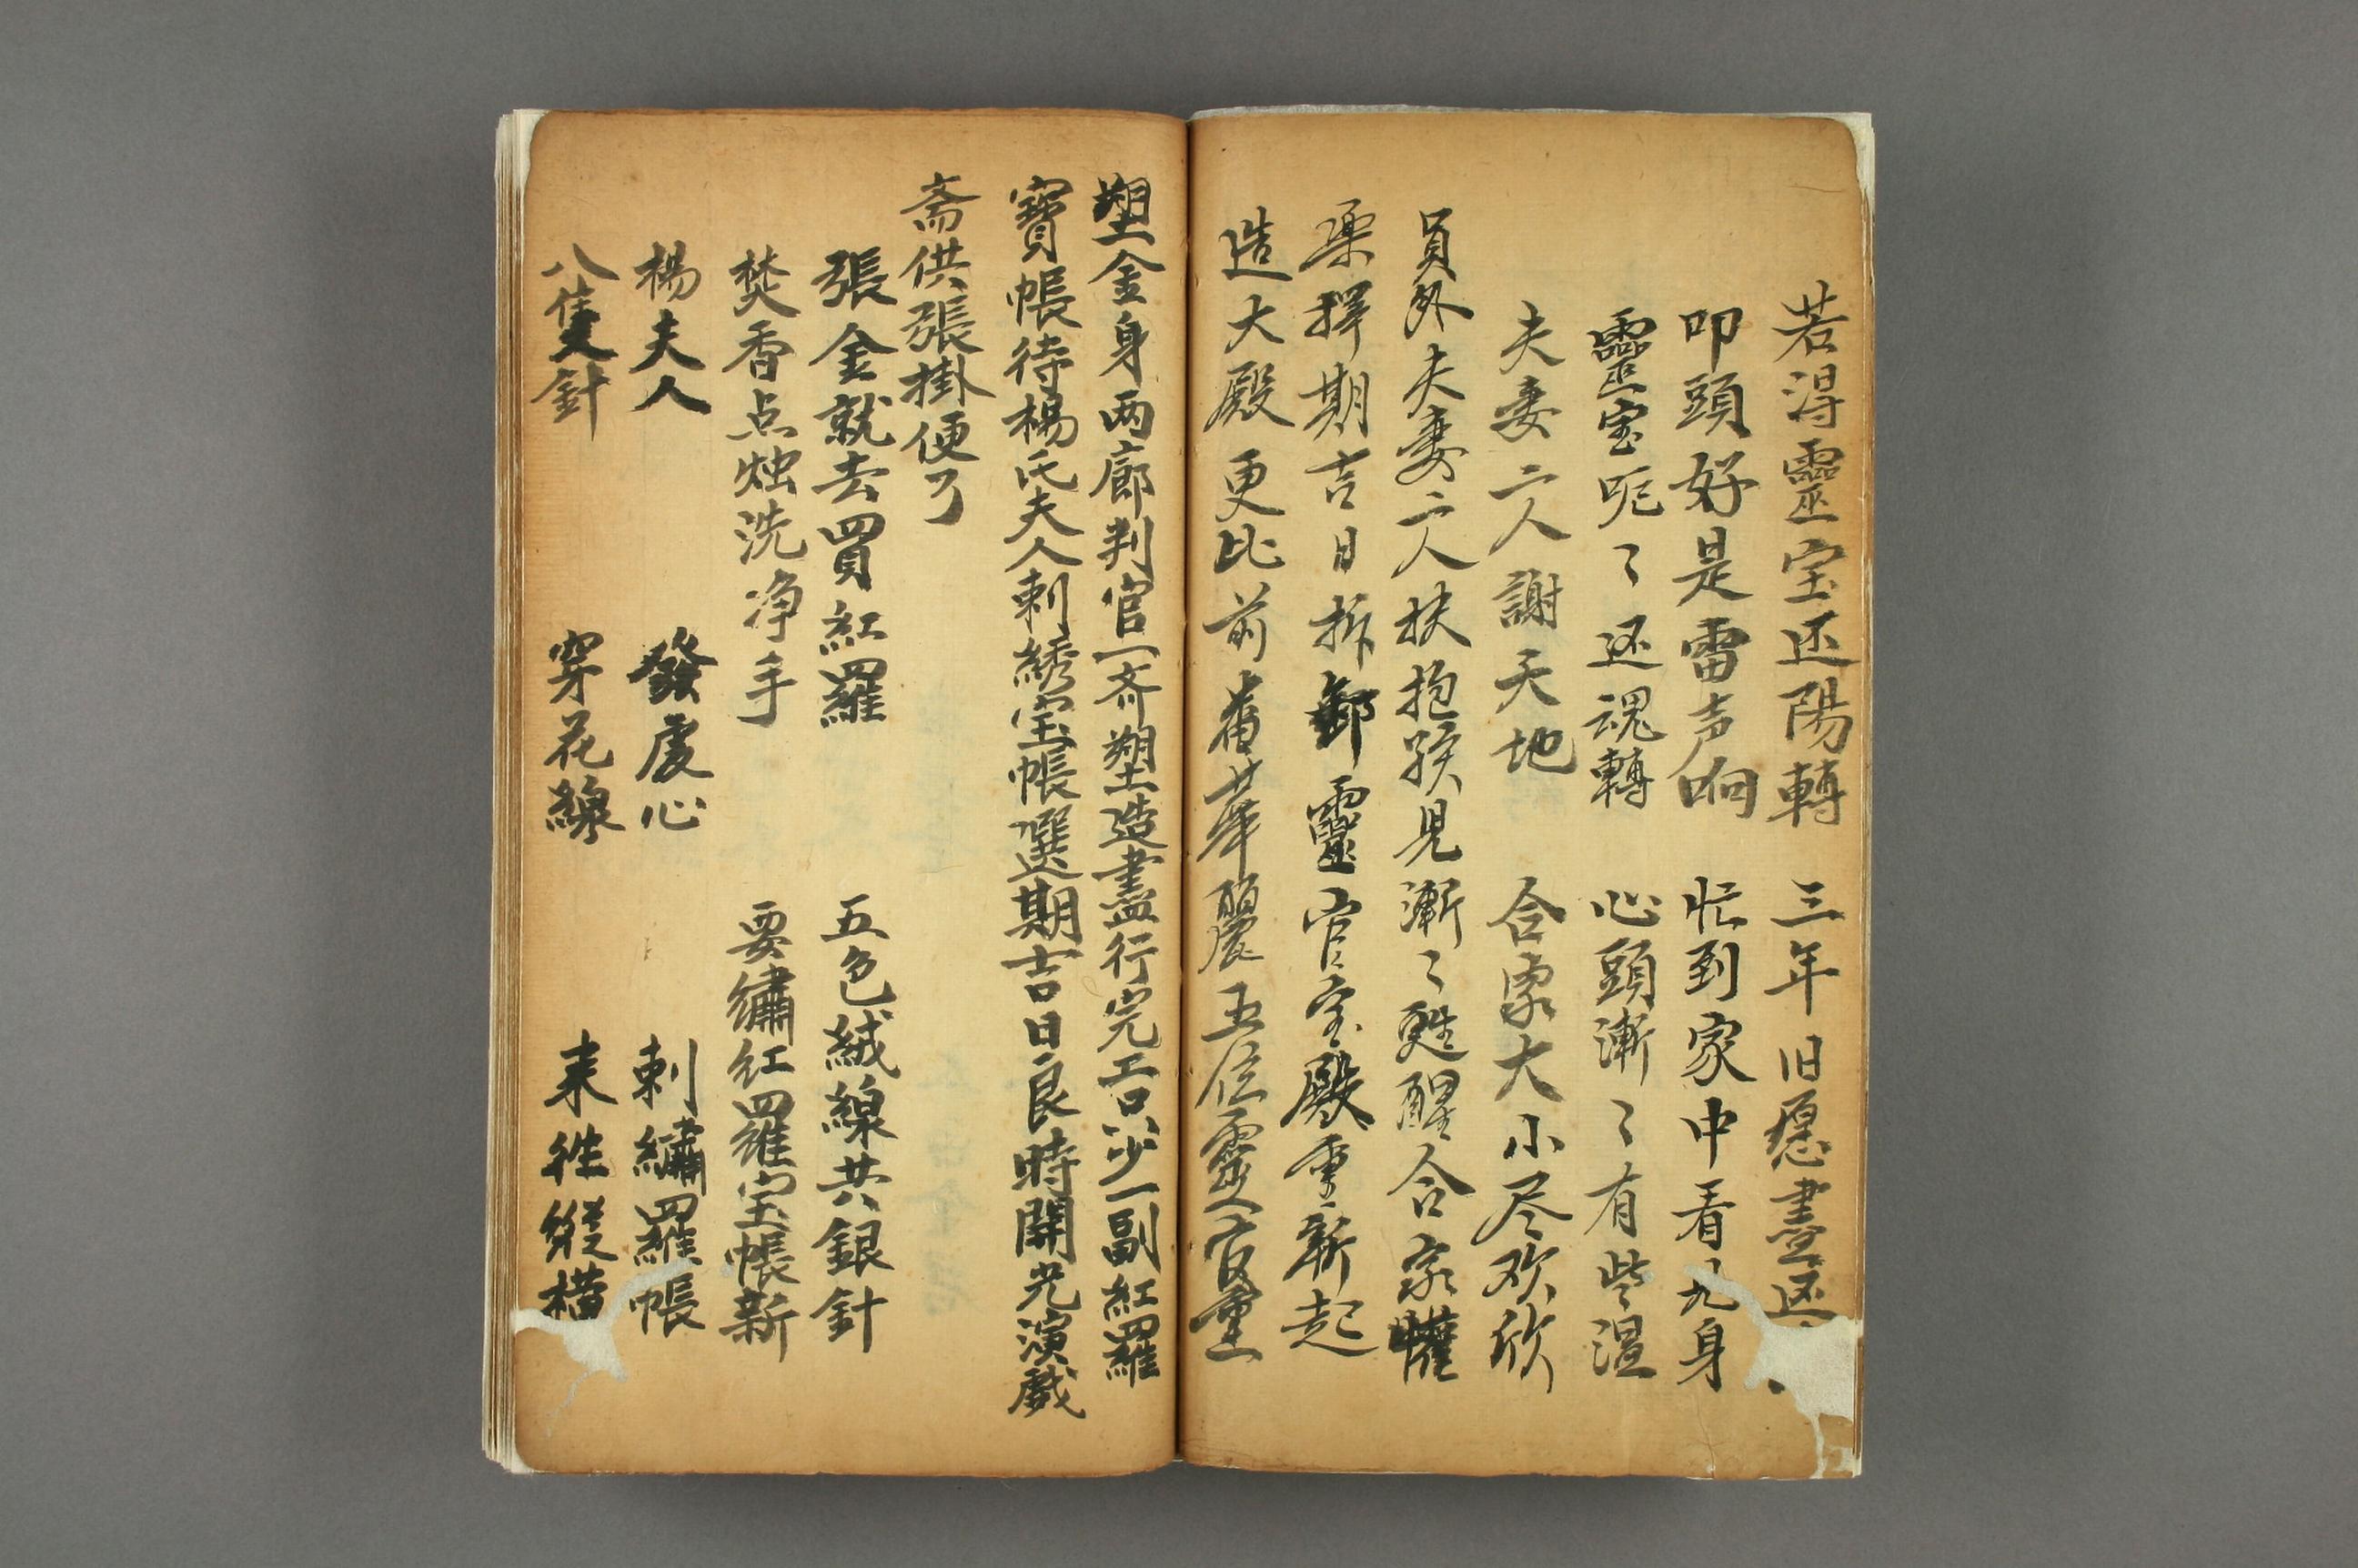 若淂靈宝还陽轉 三年旧愿盡还
叩頭好是雷声响 忙到家中看九身
靈宝呃了还魂轉 心頭漸々有些温
夫妻二人謝天地 合家大小尽欢欣
員外夫妻二人扶抱孩児漸々甦醒合家懽
樂擇期吉日拆卸靈官宝殿重新起
造大殿更比前番華麗五位靈官重
塑金身两廊判官一齐塑造盡行完工只少一副紅羅
寶帳待楊氏夫人刺綉宝帳選期吉日良時開光演戲
斋供張掛便了
張金就去買紅羅 五色絨線共銀針
焚香点烛洗净手 要繡紅羅宝帳新
楊夫人 發虔心 刺繡羅帳
八隻針 穿花線 来徃縱横